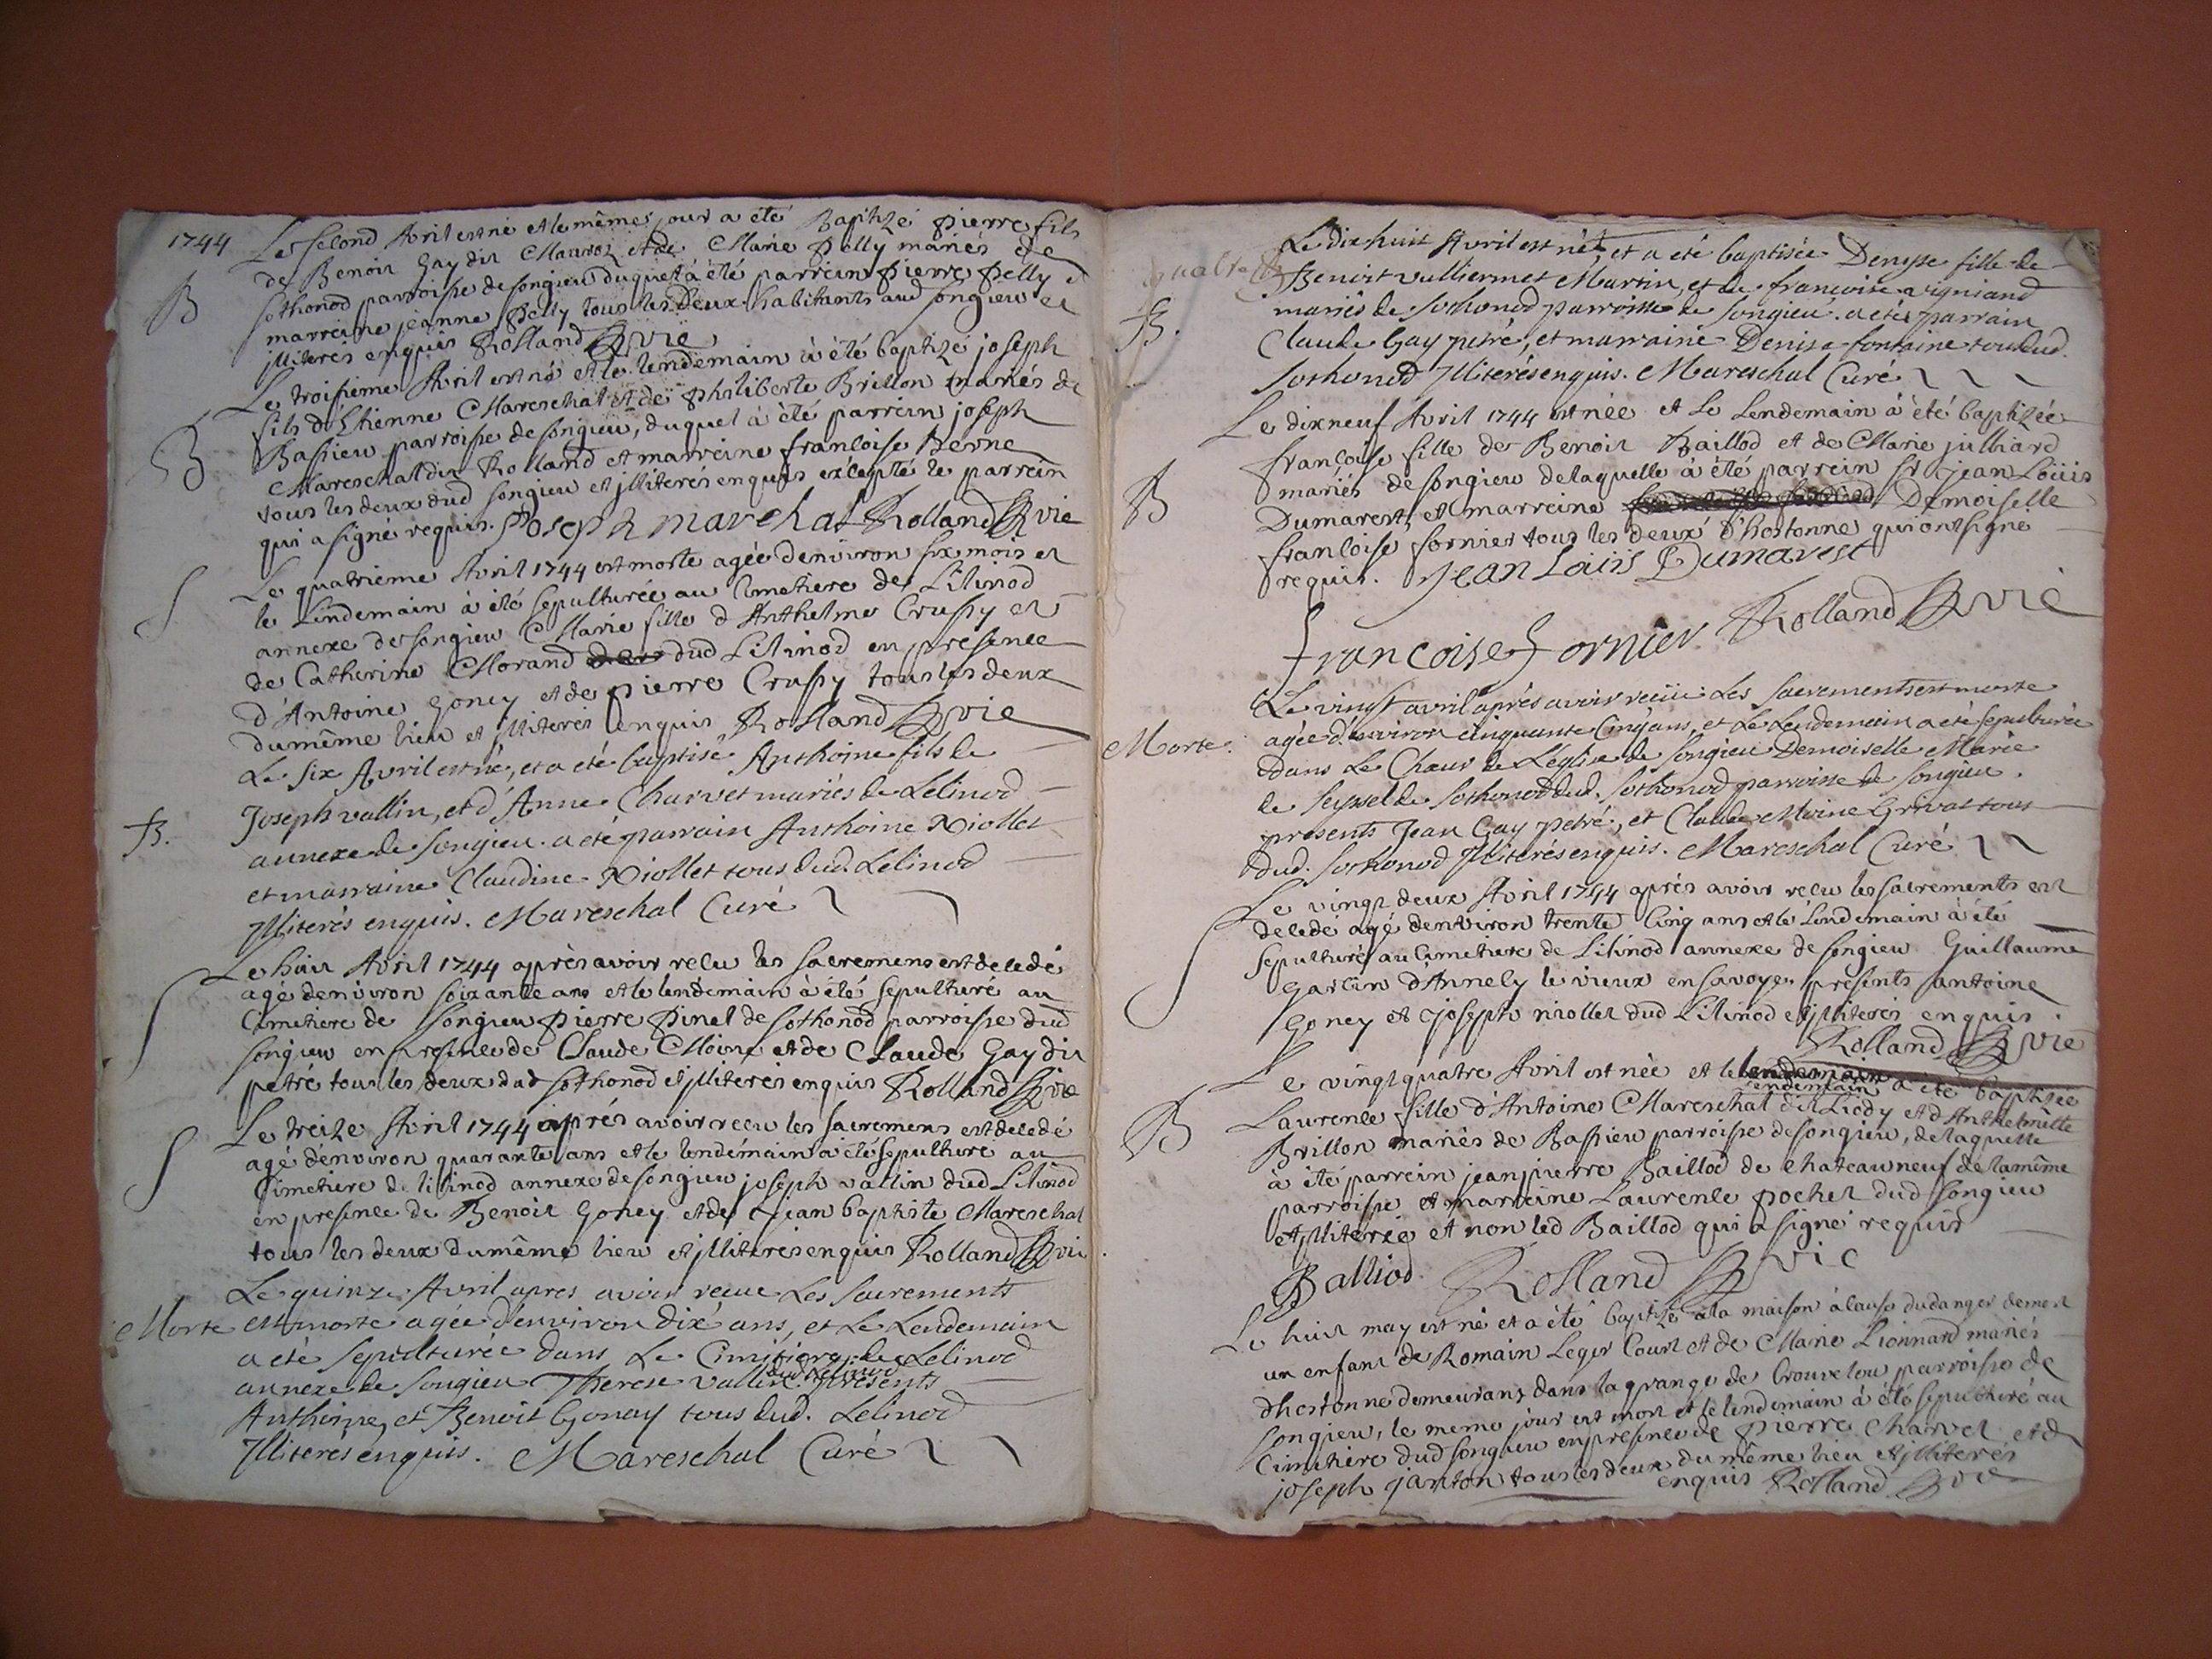 1744
Le second Avril est né et le même jour a été Baptizé pierre fils
de Benoit Gay dit Mauroz et de Marie pelly mariés de
B
sothonod parroisse de songieu duquel à été parrein pierre pelly et
marreine jeanne pelly tous les deux habitants aud songieu et
jlliterés enquis Rolland vic
Le troisieme Avril est né et le lendemain à été baptizé joseph
fils d'Etienne Mareschal et de philiberte Brillon mariés de
B
Bassieu parroisse de songieu, duquel à été parrein joseph
Mareschal dit Rolland et marreine francoise Berne
tous les deux dud songieu et jlliterés enquis excepté le parrein
qui a signé requis. Joseph marechal Rolland vic
S
Le quatrieme Avril 1744 est morte agée denviron six mois et
le Lendemain à été sepulturée au Cimetiere de Lilinod
annexe de songieu Marie fille d Anthelme Crussy et
de Catherine Morand dud Lilinod en presence
d'Antoine Goney et de pierre Crussy tous les deux
du même lieu et jlliterés enquis Rolland vic
Le six Avril est né, et a été baptisé Anthoine fils de
B.
Joseph vallin, et d'Anne Charvet mariés de Lelinod
annexe de Songieu. a été parrain Anthoine Niollet
et marraine Claudine Niollet tous dud. Lelinod
Illiterés enquis. Mareschal Curé
S
Le huit Avril 1744 après avoir recu les sacremens est decedé
agé denviron soixante ans et le lendemain à été sepulturé au
Cimetiere de songieu pierre pinel de sothonod parroisse dud
songieu en presence de Claude Moine et de Claude Gay dit
petré tous les deux dud sothonod et jlliterés enquis Rolland vic
S
Le treize Avril 1744 aprés avoir receu les sacremens est decedé
agé denviron quarante ans et le lendemain à été sepulturé au
Cimetiere de lilinod annexe de songieu joseph vallin dud Lilinod
en presence de Benoit Goney et de jean baptiste Mareschal
tous les deux du même lieu et jlliterés enquis Rolland vic
Le quinze Avril apres avoir receu Les Sacrements
Morte
est morte agée d'environ dix ans, et Le Lendemain
a eté sepulturée dans Le Cimitiere de Lelinod
dud Lelinod
annexe de Songieu Therese vallin. presents
Anthoine, et Benoit Gonay tous dud. Lelinod
Illiterés enquis. Mareschal Curé
Le dix huit Avril est né, et a eté baptisée Denyse fille de
Benoist vulliermet Martin, et de francoise vigniand
B.
mariés de Sothonod parroisse de Songieu. a eté parrain
Claude Gay petré, et marraine Denise fontaine tous dud.
Sothonod Illiterés enquis. Mareschal Curé
Le dix neuf Avril 1744 est née et Le Lendemain à été baptizée
francoise fille de Benoit Baillod et de Marie julliard
B
mariés de songieu delaquelle à été parrein sr Jean Loüis
Dumarest, et marreine Demoiselle
francoise fornier tous les deux d'hostonne qui ont signé
requis. Jean Loüis Dumarest
Francoise Fornier Rolland vic
Le vingt avril aprés avoir receu Les Sacrements est morte
agée d'environ cinquante Cinq ans, et Le Lendemain a eté sepulturée
Morte.
dans Le Chœur de L'eglise de Songieu Demoiselle Marie
de Seyssel de Sothonod dud. Sothonod parroisse de Songieu.
presents Jean Gay petré, et Claude Moine Grivat tous
dud. Sothonod Illiterés enquis. Mareschal Curé
S
Le vingt deux Avril 1744 aprés avoir recu les sacrements est
decedé agé denviron trente Cinq ans et le Lendemain à été
sepulturé au Cimetiere de Lilinod annexe de songieu Guillaume
Garcin d'Annecy le vieux en savoye, présents antoine
Goney et joseph niollet dud Lilinod et jlliterés enquis
Rolland vic
Le vingt quatre Avril est née et le lendemain
lendemain a été baptizée
B
Laurence fille d'Antoine Mareschal dit Liody et d'Anthelmette
Brillon mariés de Bassieu parroisse de songieu, delaquelle
à été parrein jean pierre Baillod de chateauneuf de la même
parroisse et marreine Laurence pochet dud songieu
et jlliterée et non led Baillod qui a signé requis
Balliod. Rolland vic
Le huit may est né et a été baptizé à la maison à cause du danger de mort
un enfant de Romain Leger Court et de Marie Lionnard mariés
dhostonne demeurans dans la grange de Crouvelou parroisse de
songieu, le meme jour est mort et le lendemain à été sepulturé au
Cimitiere dud songieu en presence de pierre Charvet et de
joseph janton tous les deux du même lieu et jlliterés
enquis Rolland vic